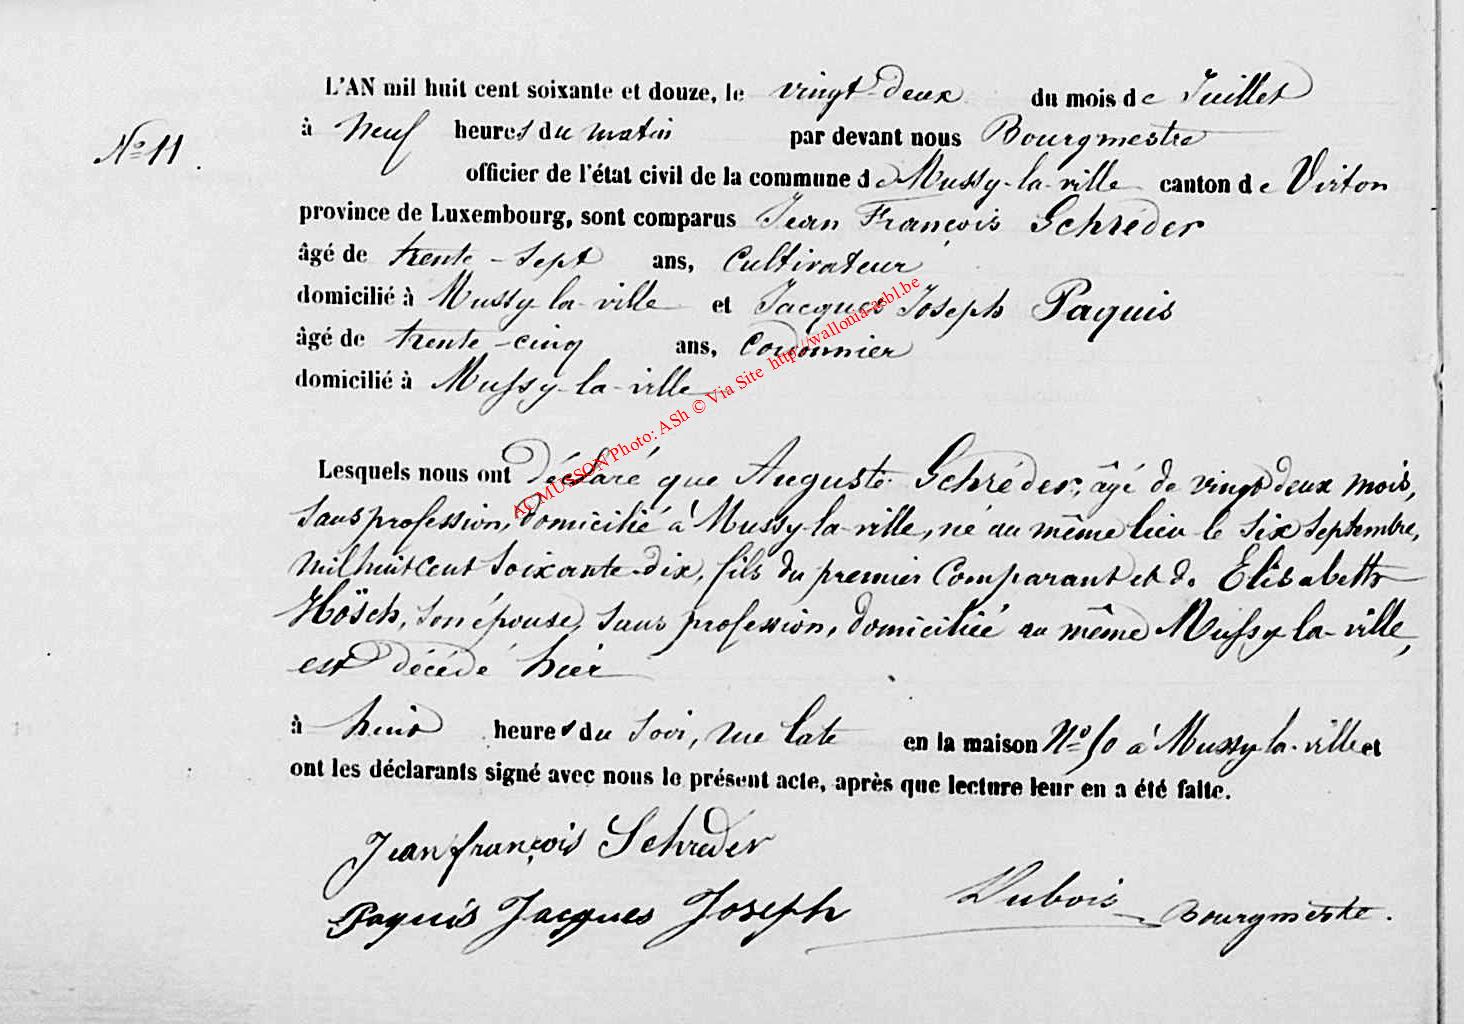 L'AN mil huit cent soixante et douze, le vingt-deux du mois de Juillet
N° 11.
à neuf heures du matin par devant nous Bourgmestre
officier de l'état civil de la commune de Mussy-la-ville canton de Virton
province de Luxembourg, sont comparus Jean François Schréder
âgé de trente-sept ans, Cultivateur
domicilié à Mussy-la-ville et Jacques Joseph Paquis
âgé de trente-cinq ans, Cordonnier
domicilié à Mussy-la-ville
AC MUSSON Photo: ASh © Via Site http://wallonia-asbl.be
Lesquels nous ont déclaré que Auguste Schréder, âgé de vingt deux mois,
sans profession, domicilié à Mussy-la-ville, né au même lieu le six septembre,
mil huit cent soixante-dix, fils du premier Comparant et de Elisabeth
Hösch, son épouse, sans profession, domiciliée au même Mussy-la-ville,
est décédé hier
à huit heures du soir, rue Late en la maison N° 50 à Mussy-la-ville et
ont les déclarants signé avec nous le présent acte, après que lecture leur en a été faite.
Jean françois Schreder
Paquis Jacques Joseph Dubois Bourgmestre.